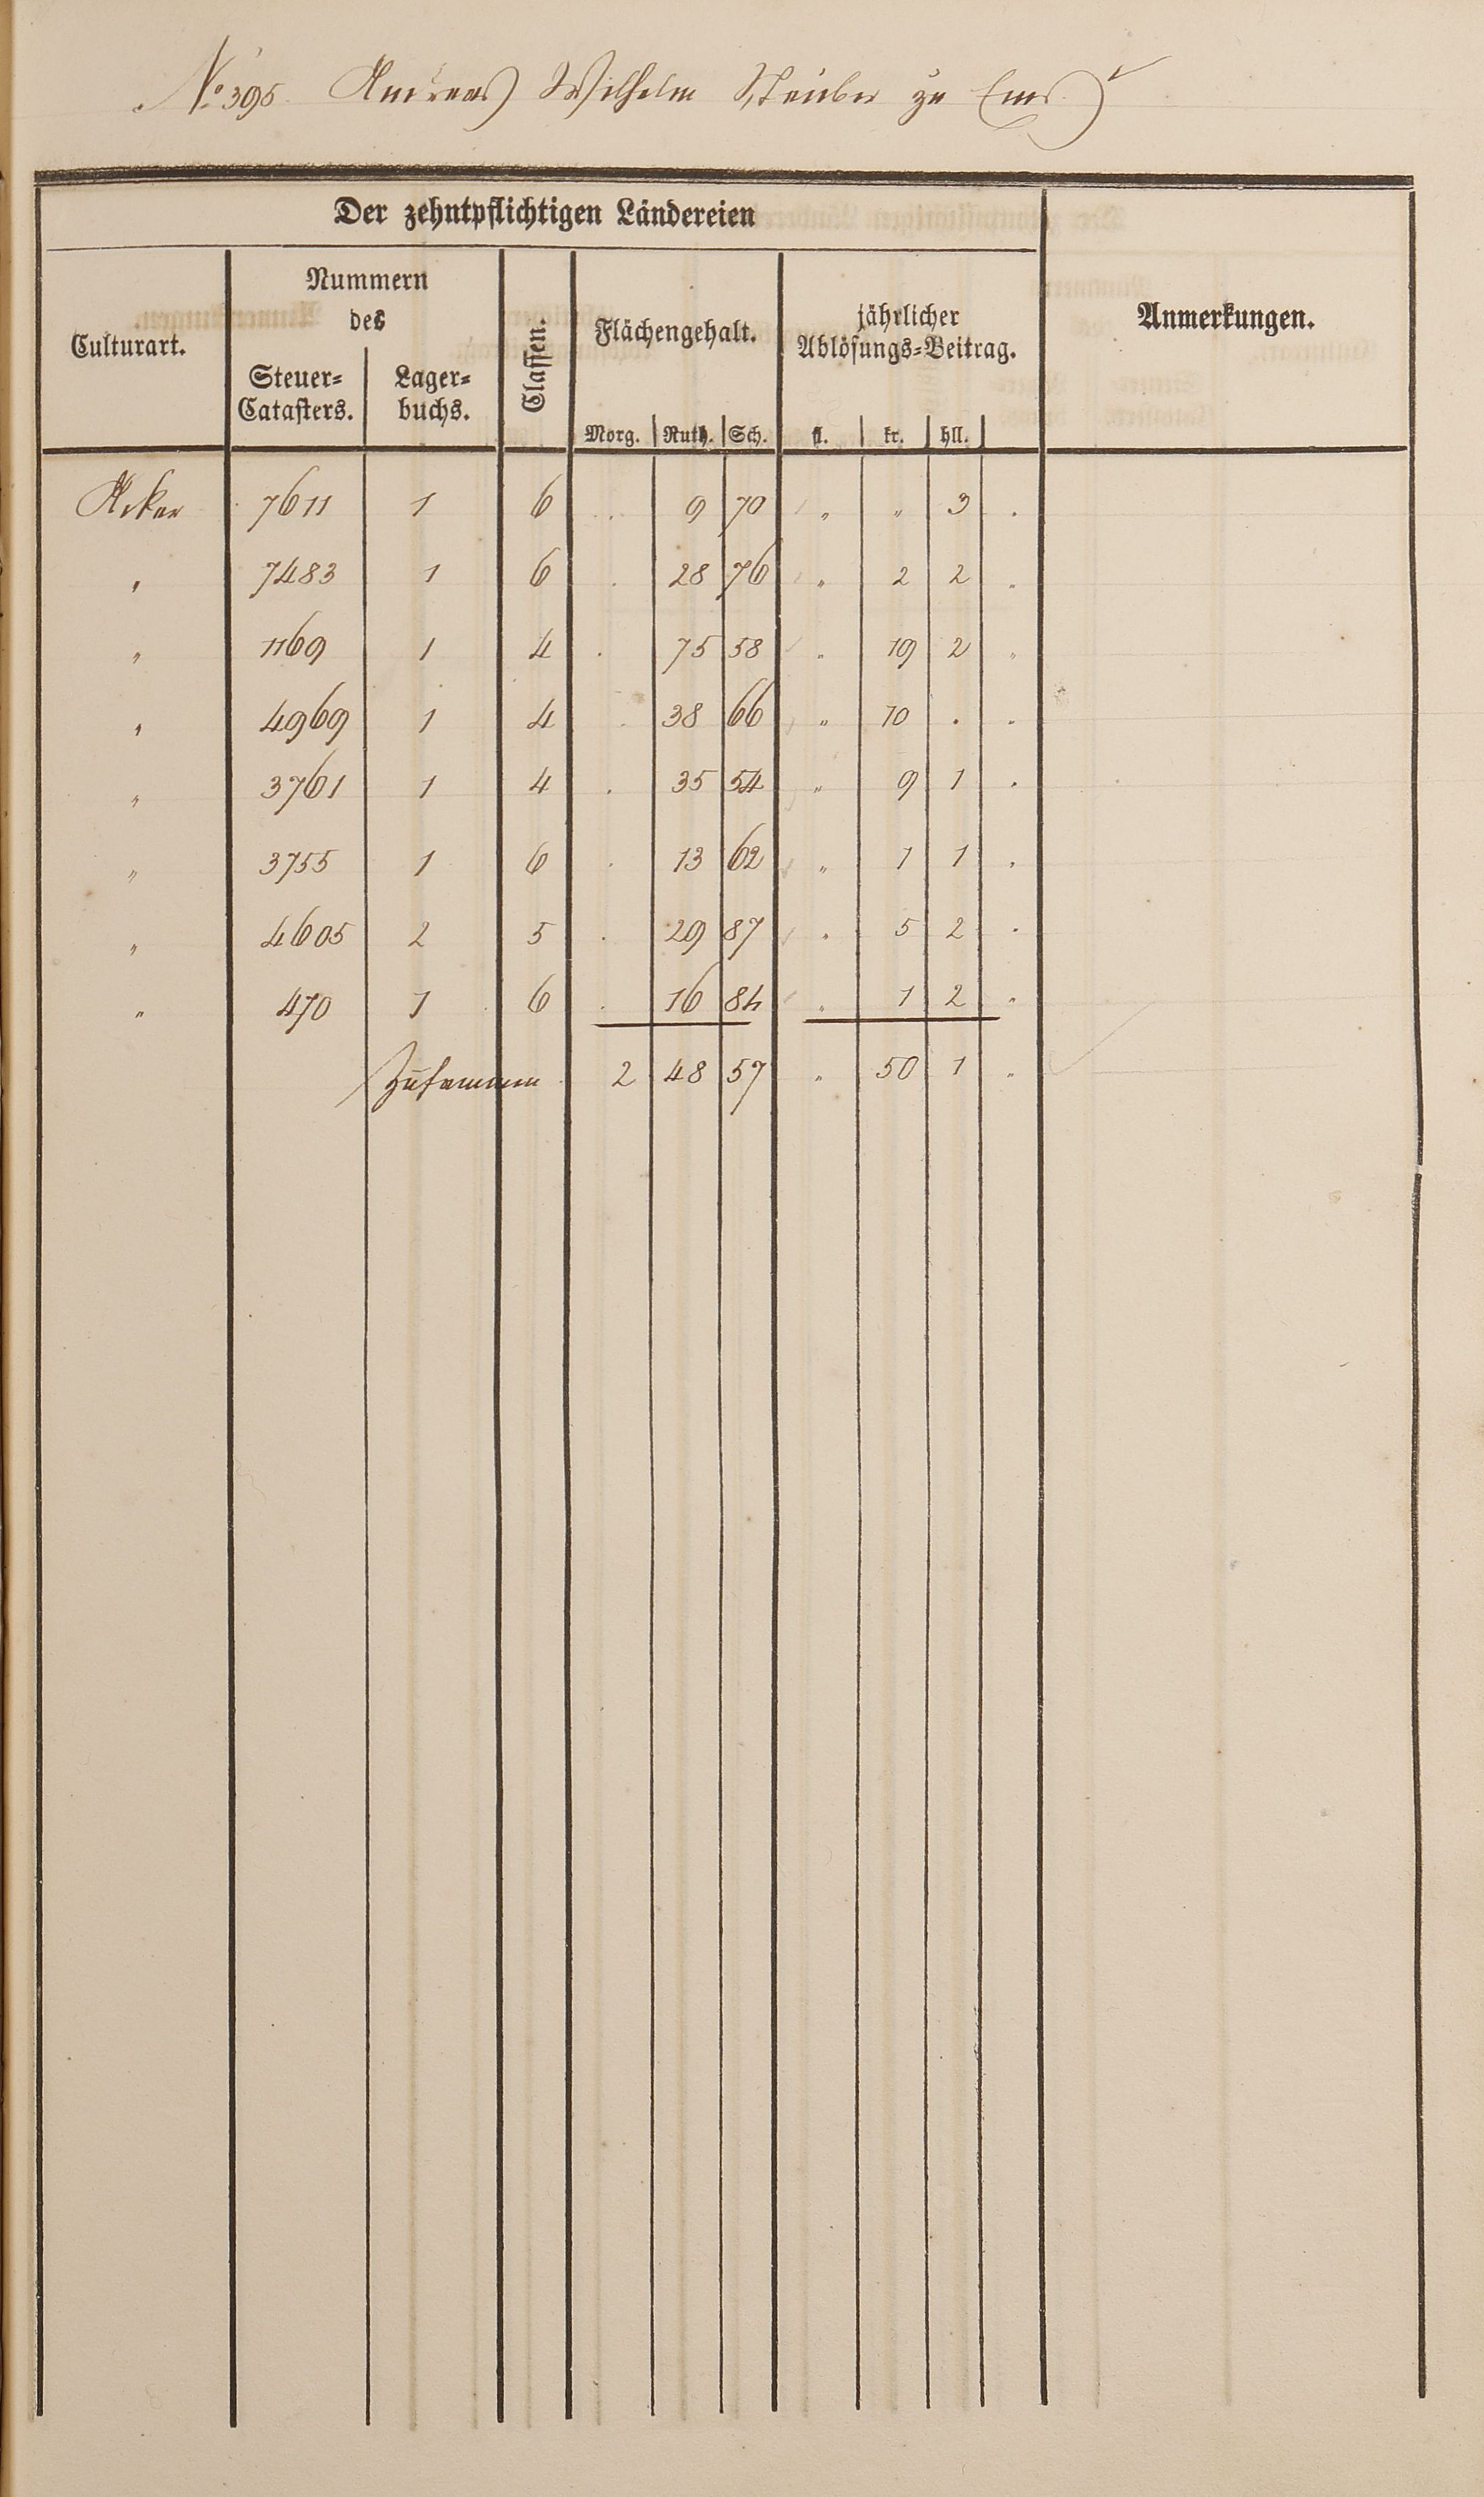 No 395. Andreas Wilhelm Stuber zu Ems
Der zehntpflichtigen Ländereien
Culturart. Nummern des Steuer=Catasters. Lager=buchs. Classen. Flächengehalt. Morg. Ruth. Sch. jährlicher Ablösungs=Beitrag. fl. kr. hll. Anmerkungen.
Acker 7611 1 6 . 9 70 " " 3 .
" 7483 1 6 . 28 76 " 2 2 "
" 1169 1 4 . 75 58 " 19 2 "
" 4969 1 4 . 38 66 " 10 . .
" 3761 1 4 . 35 54 " 9 1 .
" 3755 1 6 . 13 62 " 1 1 .
" 4605 2 5 . 29 87 . 5 2 .
" 470 1 6 . 16 84 . 1 2 "
Zusammen 2 48 57 " 50 1 "